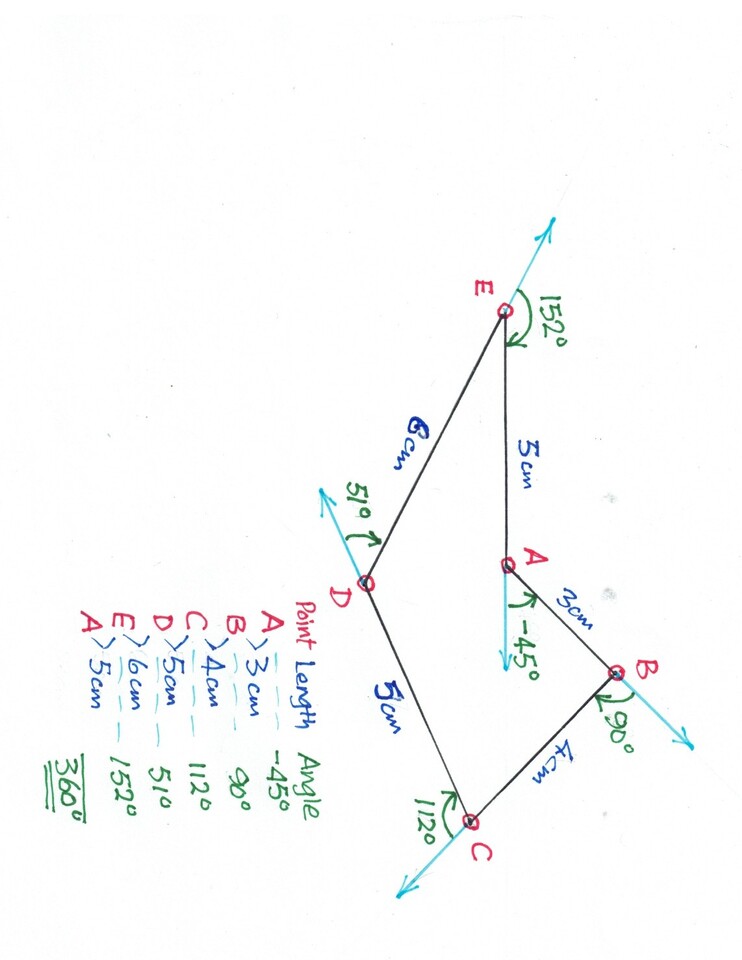 B
90°
3cm
4cm
152°
5cm
A
-45°
E
C
112°
6cm
5cm
51°
D
Point Length Angle
A -45°
3cm
B 90°
4cm
C 112°
5cm
D 51°
6cm
E 152°
5cm
A
360°